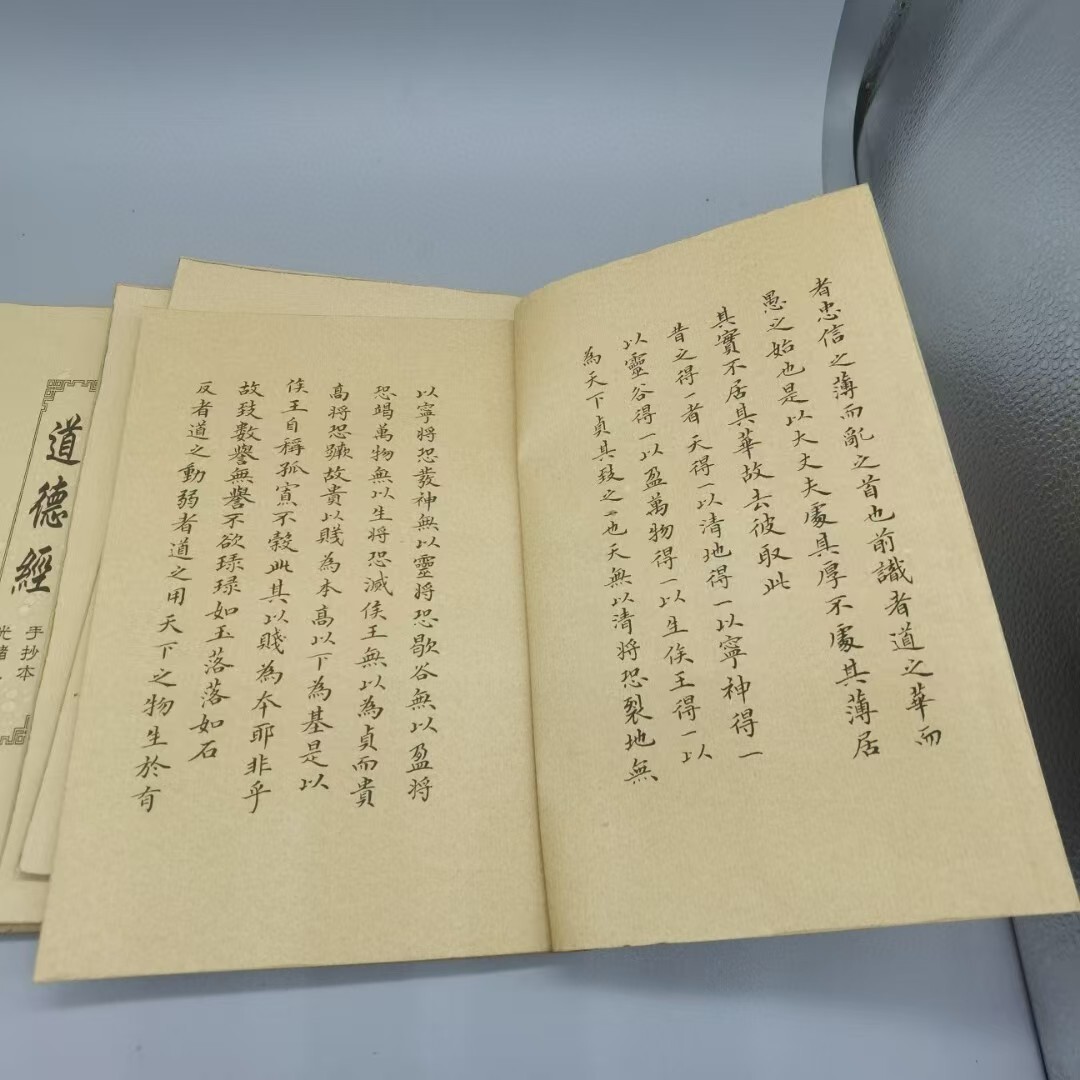 者忠信之薄而亂之首也前識者道之華而
愚之始也是以大丈夫處其厚不處其薄居
其實不居其華故去彼取此
昔之得一者天得一以清地得一以寧神得一
以靈谷得一以盈萬物得一以生侯王得一以
為天下貞其致之一也天無以清將恐裂地無
以寧將恐發神無以靈將恐歇谷無以盈將
恐竭萬物無以生將恐滅侯王無以為貞而貴
高將恐蹶故貴以賤為本高以下為基是以
侯王自稱孤寡不穀此其以賤為本耶非乎
故致數譽無譽不欲琭琭如玉落落如石
反者道之動弱者道之用天下之物生於有
道德經
手抄本
光緒